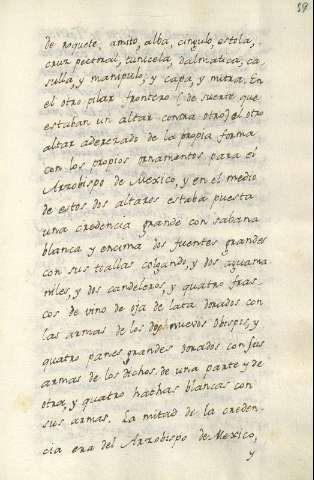 59
de roquete, amito, alba, cingulo, estola,
cruz pectoral, tunicela, dalmatica, ca
sulla, y manipulo, y capa, y mitra. En
el otro pilar frontero (de suerte que
estaban un altar contra otro) el otro
altar aderezado de la propia forma
con los propios ornamentos para el
Arzobispo de Mexico, y en el medio
de estos dos altares estaba puesta
una credencia grande con sabana
blanca y encima dos fuentes grandes
con sus toallas colgando, y dos aguama
niles, y dos candeleros, y quatro fras
cos de vino de oja de lata dorados con
las armas de los dos nuevos Obispos, y
quatro panes grandes dorados con las
armas de los dichos, de una parte y de
otra, y quatro hachas blancas con
sus armas. La mitad de la creden-
cia era del Arzobispo de Mexico,
y